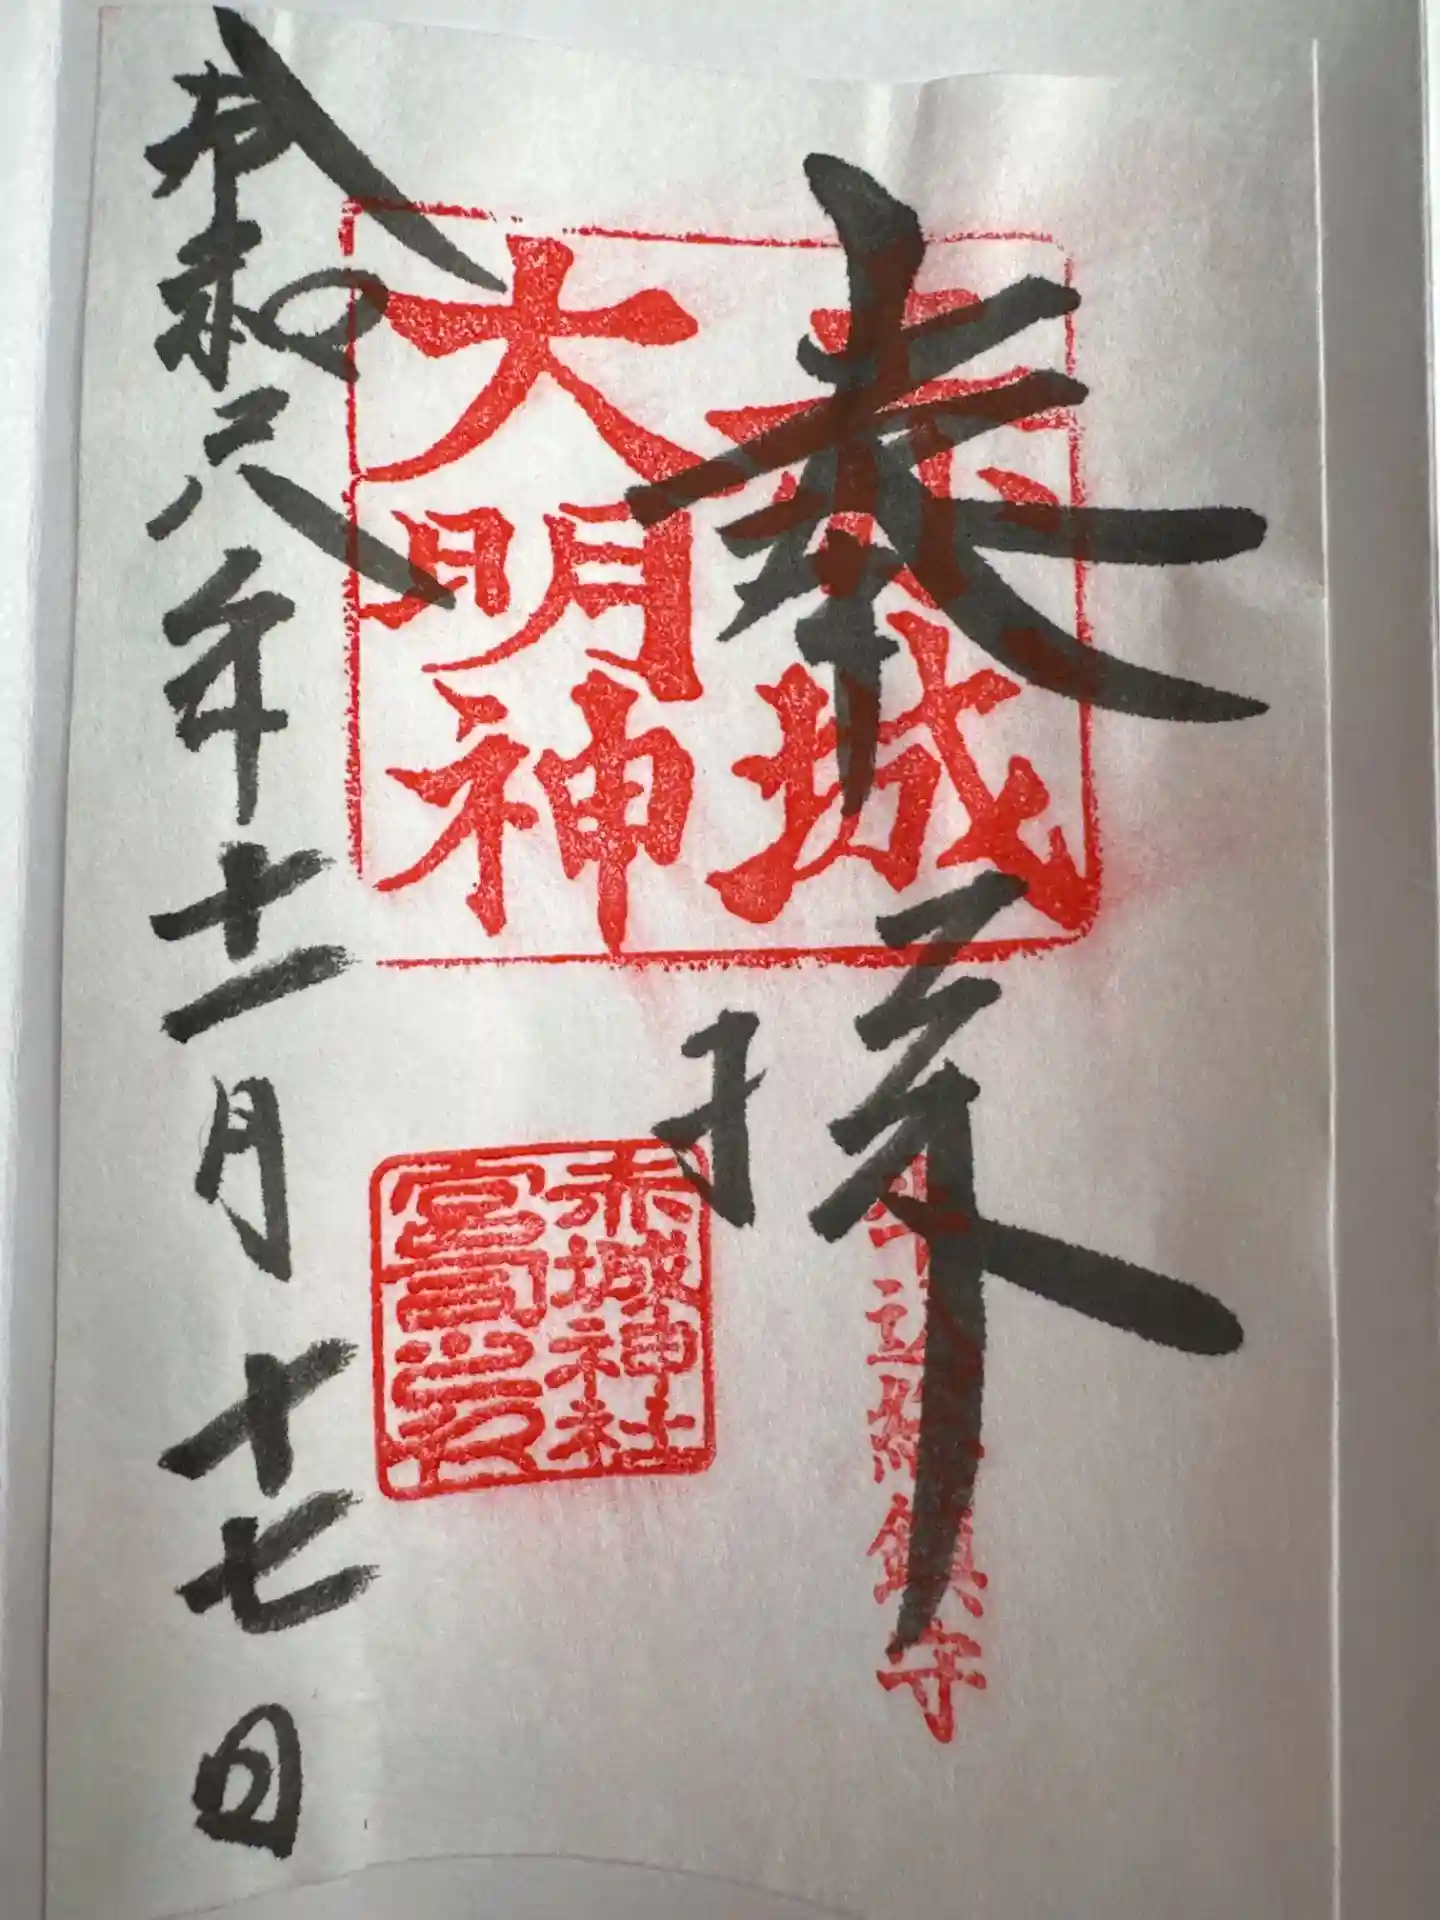 奉拝
赤城
大明神
牛込総鎮守
赤城神社
宮司
令和六年十一月十七日